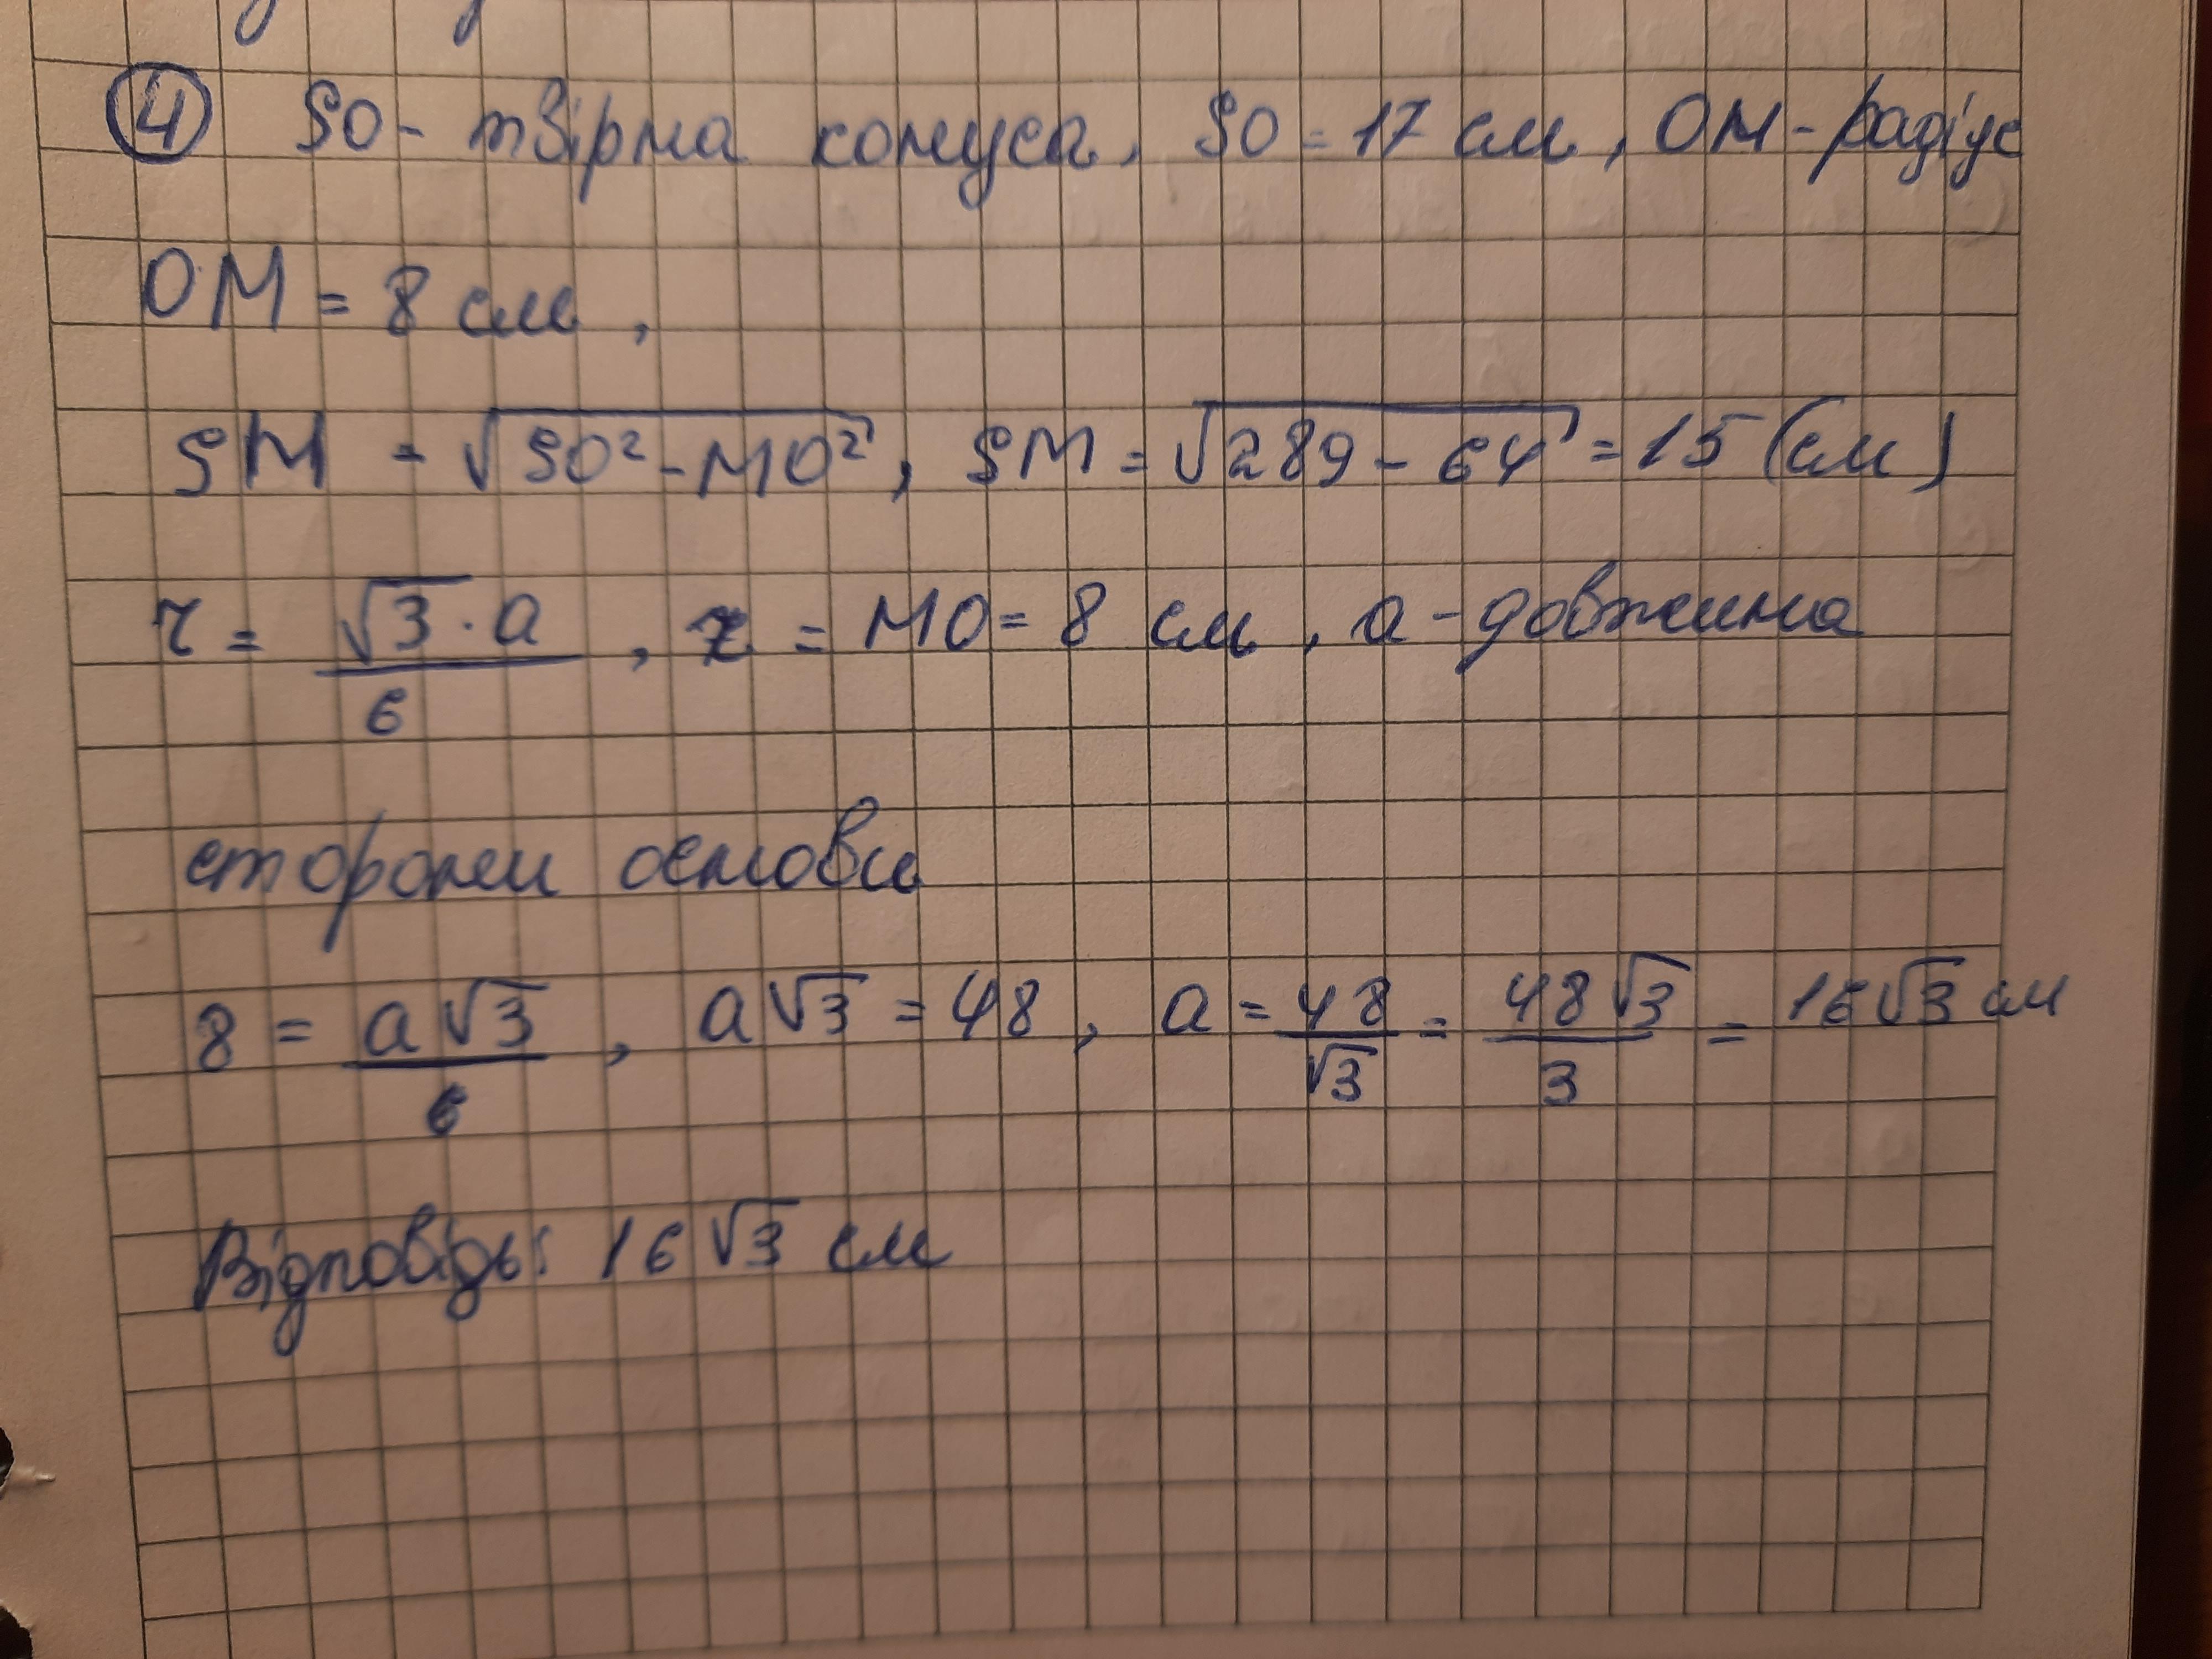 ④ SO - твірна конуса, SO = 17 см, OM - радіус
OM = 8 см,
SM = √(SO² - MO²), SM = √(289 - 64) = 15 (см)
r = (√3 · a)/6, r = MO = 8 см, a - довжина
сторони основи
8 = (a√3)/6, a√3 = 48, a = 48/√3 = 48√3/3 = 16√3 см
Відповідь: 16√3 см